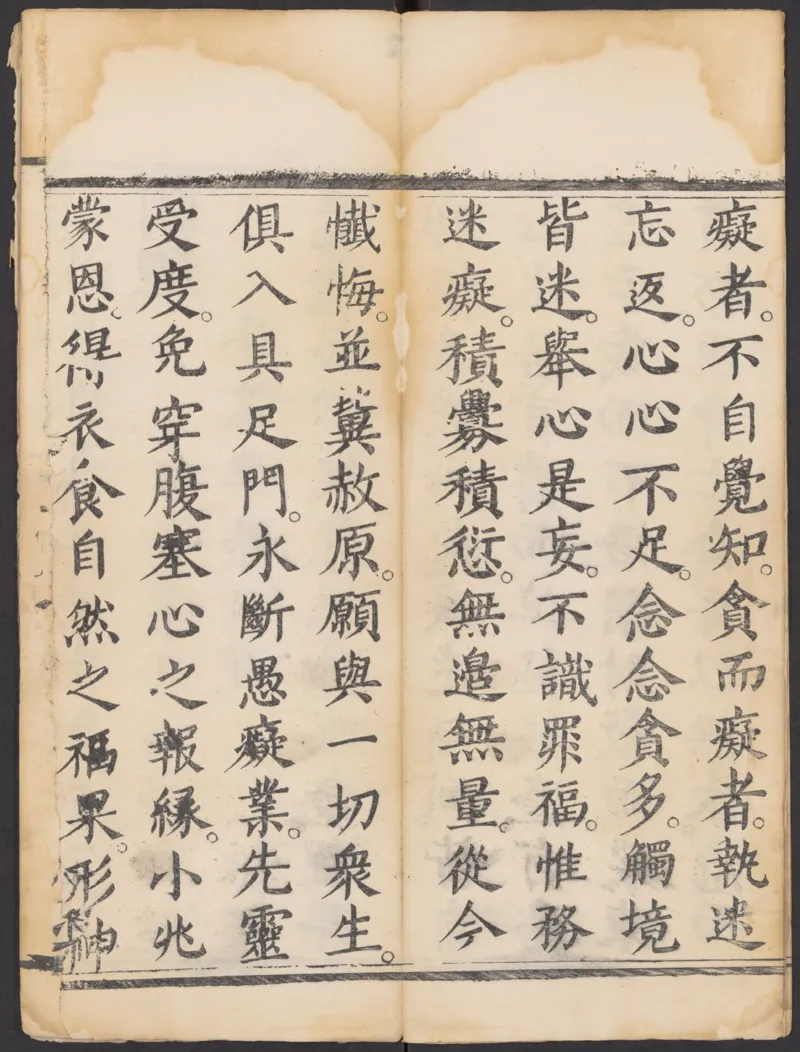 癡者。不自覺知。貪而癡者。執迷
忘返。心心不足。念念貪多。觸境
皆迷。舉心是妄。不識罪福。惟務
迷癡。積釁積愆。無邉無量。從今
懺悔。並冀赦原。願與一切衆生。
俱入具足門。永斷愚癡業。先靈
受度。免穿腹塞心之報縁。小兆
蒙恩。得衣食自然之福果。形神